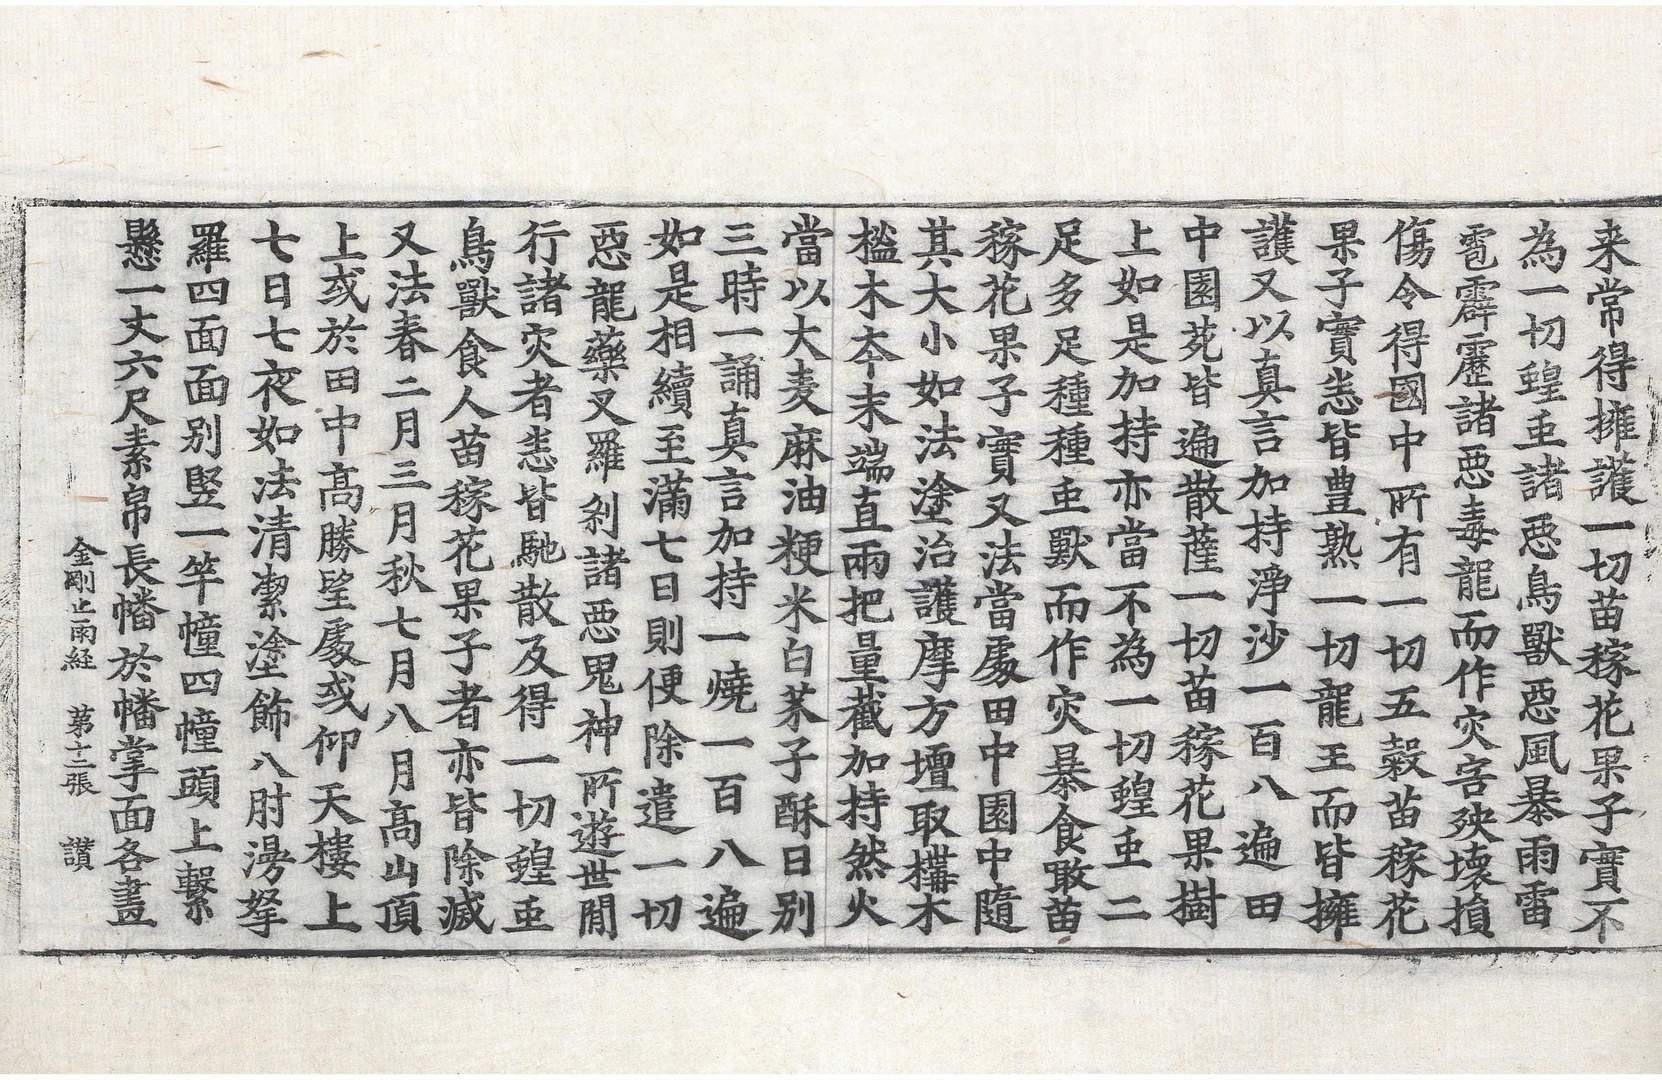 来常得擁護一切苗稼花果子實不
為一切蝗䖝諸惡鳥獸惡風暴雨雷
雹霹靂諸惡毒龍而作灾害殃壊損
傷令得國中所有一切五穀苗稼花
果子實悉皆豊熟一切龍王而皆擁
護又以真言加持淨沙一百八遍田
中園苑皆遍散薩一切苗稼花果樹
上如是加持亦當不為一切蝗䖝二
足多足種種䖝獸而作灾暴食敢苗
稼花果子實又法當處田中園中隨
其大小如法塗治護摩方壇取構木
榓木夲末端直兩把量截加持然火
當以大麦麻油粳米白芥子酥日别
三時一誦真言加持一燒一百八遍
如是相續至滿七日則便除遣一切
惡龍藥叉羅剎諸惡鬼神所遊世間
行諸灾者悉皆馳散及得一切蝗䖝
鳥獸食人苗稼花果子者亦皆除滅
又法春二月三月秋七月八月高山頂
上或於田中高勝望處或仰天樓上
七日七夜如法清潔塗飾八肘漫拏
羅四面面别竪一竿幢四幢頭上繫
懸一丈六尺素帛長幡於幡掌面各畫
金剛止雨経 第十二張 讃